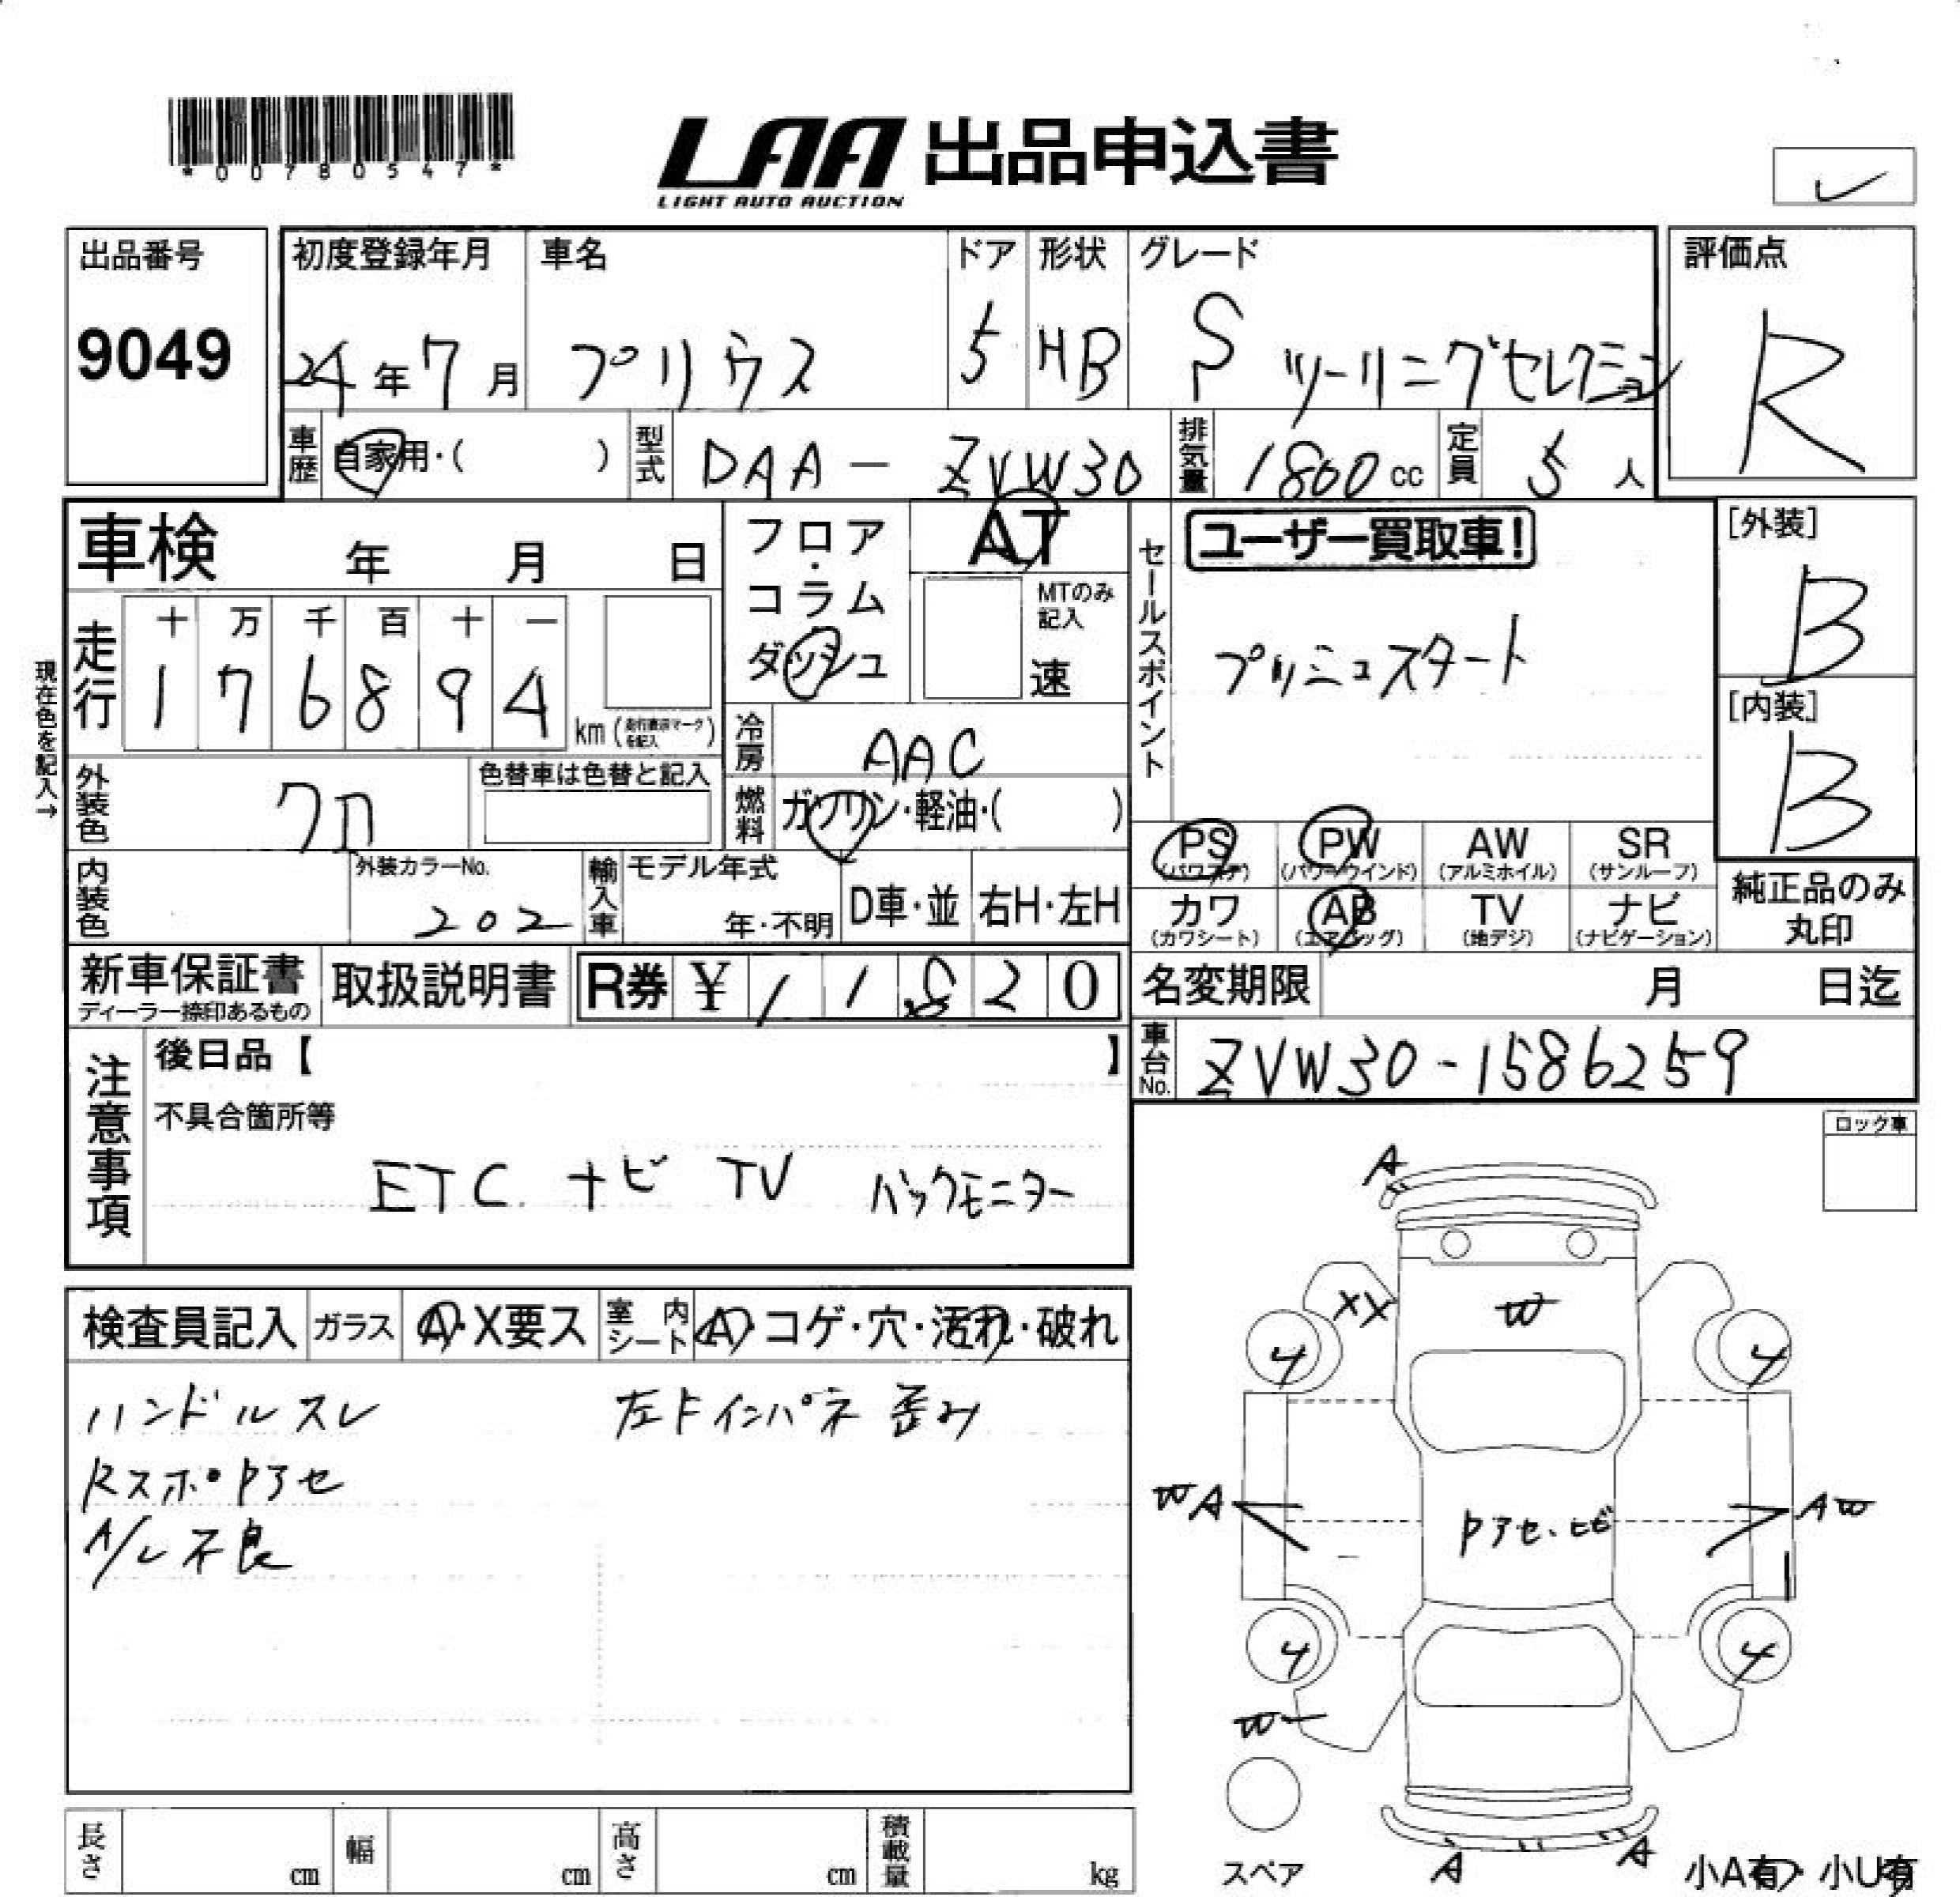 *00780547*
LAA 出品申込書
LIGHT AUTO AUCTION
出品番号
9049
初度登録年月
24年7月
車名
プリウス
ドア
5
形状
HB
グレード
S ツーリングセレクション
評価点
R
車歴 自家用・( )
型式 DAA-ZVW30
排気量 1800cc
定員 5人
車検 年 月 日
フロア・コラム
ダッシュ
AT
MTのみ記入
速
セールスポイント
ユーザー買取車!
プッシュスタート
[外装]
B
[内装]
B
現在色を記入→
走行
十 万 千 百 十 一
1 7 6 8 9 4
km(走行表示マークを記入)
冷房 AAC
燃料 ガソリン・軽油・( )
外装色 クロ
色替車は色替と記入
内装色
外装カラーNo.
202
輸入車
モデル年式
年・不明
D車・並
右H・左H
PS (パワステ)
PW (パワーウインド)
AW (アルミホイル)
SR (サンルーフ)
カワ (カワシート)
AB (エアバッグ)
TV (地デジ)
ナビ (ナビゲーション)
純正品のみ
丸印
新車保証書
ディーラー捺印あるもの
取扱説明書
R券 ¥ 11820
名変期限 月 日迄
車台No. ZVW30-1586259
注意事項
後日品【 】
不具合箇所等
ETC ナビ TV バックモニター
ロック車
検査員記入
ガラス A・X要ス
室内シート A・コゲ・穴・汚れ・破れ
ハンドルスレ 左Fインパネ歪み
Rスポpアセ
A/L不良
A
XX
W
4
4
WA
AW
Pアセ・ヒビ
4
4
W
A
A
スペア
小A有・小U有
長さ cm
幅 cm
高さ cm
積載量 kg